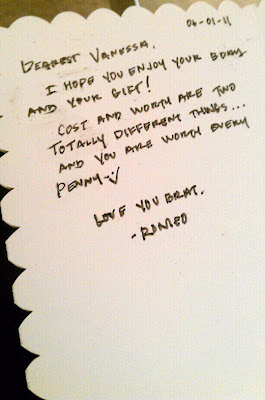 06-01-11
DEAREST VANESSA,
I HOPE YOU ENJOY YOUR BDAY
AND YOUR GIFT!
COST AND WORTH ARE TWO
TOTALLY DIFFERENT THINGS...
AND YOU ARE WORTH EVERY
PENNY :)
LOVE YOU BRAT.
- ROMEO